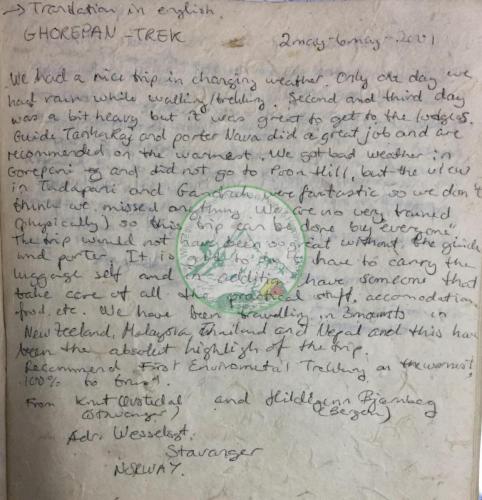 → Translation in english.
GHOREPAN - TREK 2 may - 6 may - 2001
We had a nice trip in changing weather. Only one day we
had rain while walking/trekking. Second and third day
was a bit heavy but it was great to get to the lodges.
Guide and porter Nava did a great job and are
recommended on the warmest. We got bad weather in
Gorepani and did not go to Poon Hill, but the view
in Tadapani and were fantastic so we don't
think we missed anything. We are no very trained
(physically) so this trip can be done by "everyone"
The trip would not have been so great without the guide
and porter. It is to have to carry the
luggage self and in addition have someone that
take care of all the practical stuff, accomodation
food, etc. We have been travelling in 3 in
New Zeeland, Malaysia Thailand and Nepal and this have
been the absolut highligh of the trip.
Recommend First Enviromental Trekking on the warmest,
100% to trust.
From Knut and Hildegunn
(Stavanger) (Bergen)
Adr:
Stavanger
NORWAY.